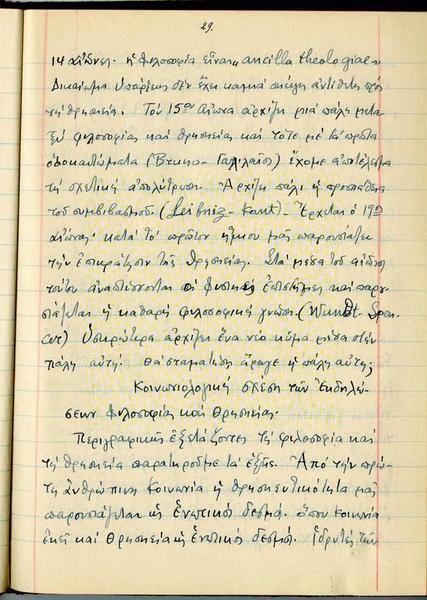 29.
14 αἰῶνες. ἡ φιλοσοφία εἶναι „ancilla theologiae„
Δικαίωμα ὑπάρξεως δὲν ἔχει καμμιὰ σκέψη ἀντίθετη πρὸς
τὴ θρησκεία. Τὸν 15ον αἰῶνα ἀρχίζει μιὰ πάλη μετα-
ξὺ φιλοσοφίας καὶ θρησκείας καὶ τότε μὲ τὰ πρῶτα
ὁλοκαυτώματα (Bruno - Γαλιλαῖος) ἔχομε ἀποτέλεσμα
τὴ σχετικὴ ἀπολύτρωση. Ἀρχίζει πάλι ἡ προσπάθεια
τοῦ συμβιβασμοῦ. (Leibniz - Kant). Ἔρχεται ὁ 19ος
αἰῶνας· κατὰ τὸ πρῶτον ἥμισυ μᾶς παρουσιάζει
τὴν ἐπικράτησιν τῆς θρησκείας. Στὰ μέσα τοῦ αἰῶνος
τούτου ἀναπτύσσονται οἱ φυσικὲς ἐπιστῆμες καὶ παρου-
σιάζεται ἡ καθαρὴ φιλοσοφικὴ γνώση. (Wundt - Spen-
cer) Ὑστερώτερα ἀρχίζει ἕνα νέο κῦμα μέσα στὴν
πάλη αὐτή. Θὰ σταματήση ἄραγε ἡ πάλη αὐτή;
Κοινωνιολογικὴ σχέση τῶν ἐκδηλώ-
σεων φιλοσοφίας καὶ θρησκείας.
Περιγραφικῶς ἐξετάζοντες τὴ φιλοσοφία καὶ
τὴ θρησκεία παρατηροῦμε τὰ ἑξῆς. Ἀπὸ τὴν πρώ-
τη ἀνθρώπινη κοινωνία ἡ θρησκευτικότητα μᾶς
παρουσιάζεται ὡς ἑνωτικὸς δεσμός. ὅπου κοινωνία
ἐκεῖ καὶ θρησκεία ὡς ἑνωτικὸς δεσμός. Ἱδρυτὲς τῶν